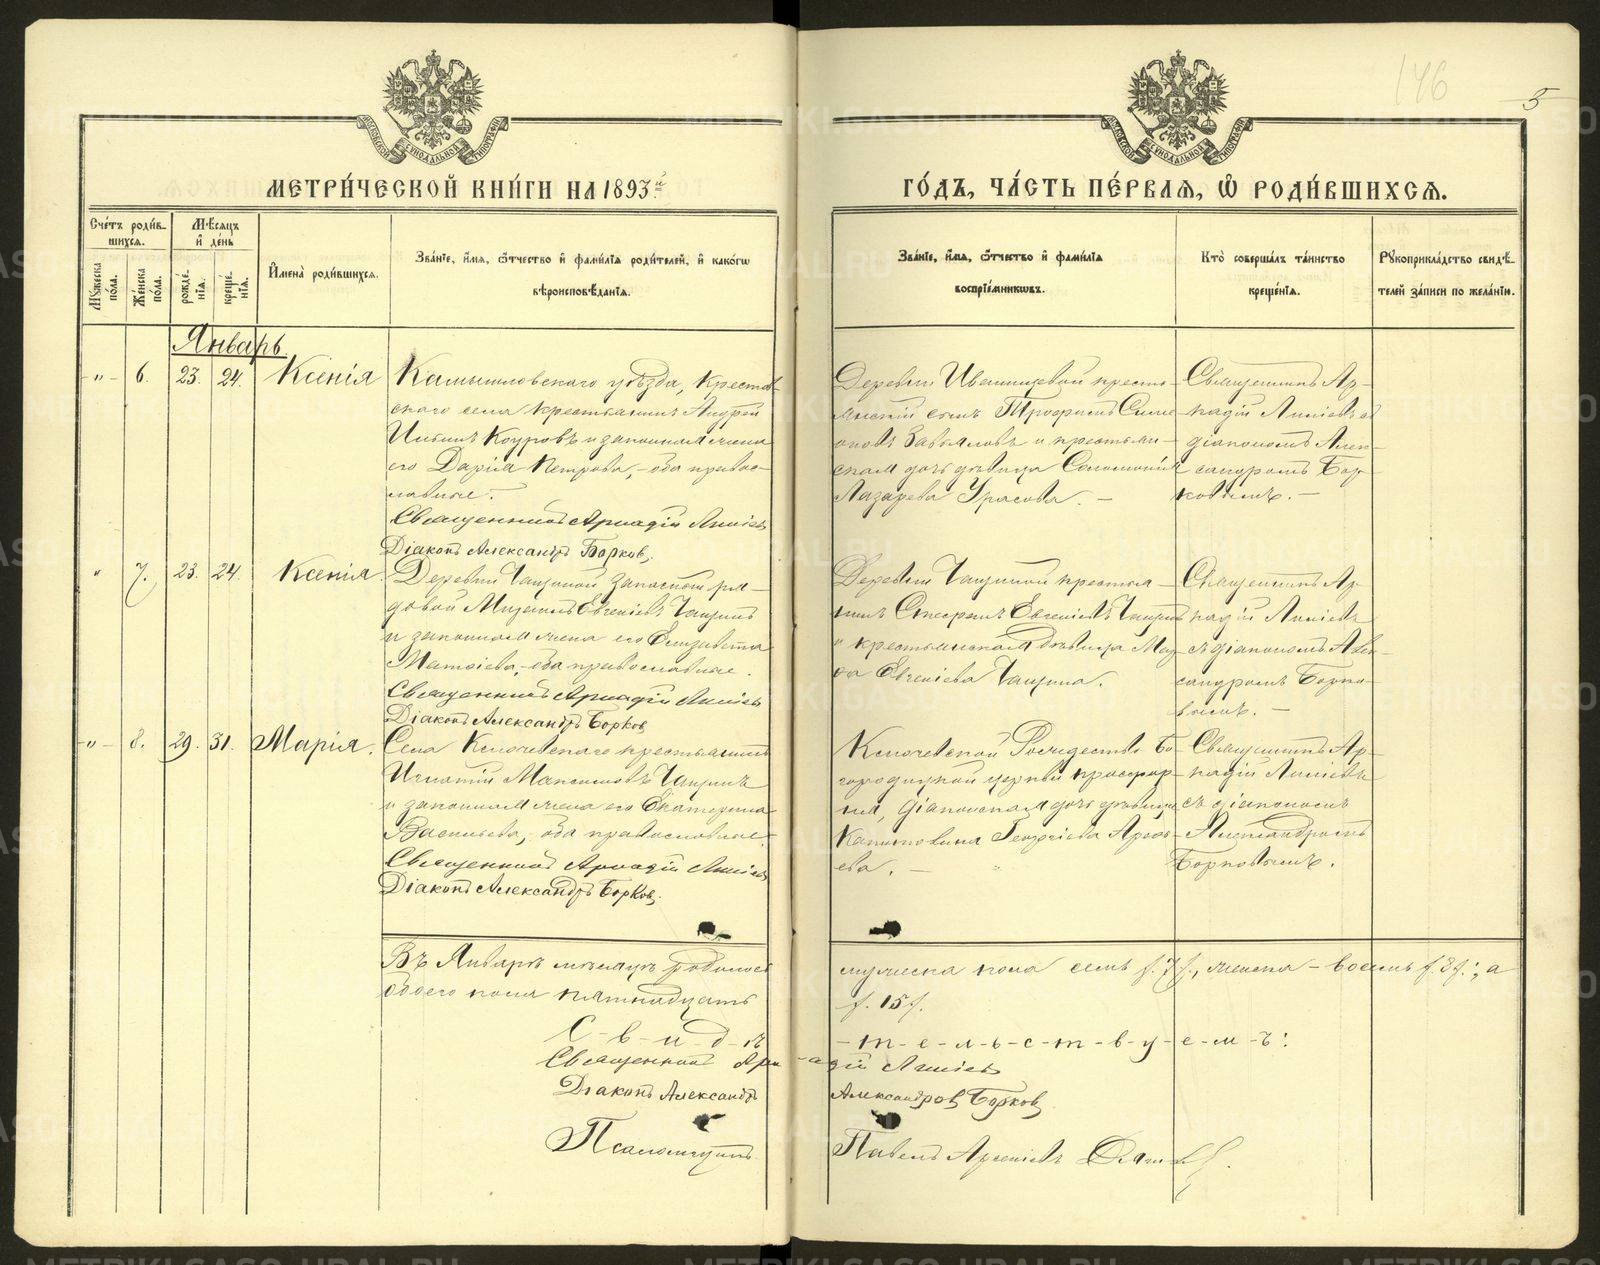 146
5
МЕТРИ́ЧЕСКОЙ КНИ́ГИ НА 1893й
ГО́ДЪ, ЧА́СТЬ ПЕ́РВАЯ, Ѽ РОДИ́ВШИХСЯ.
Сче́тъ роди́в-
шихся.
Мѣ́сяцъ
и҆ де́нь
Мꙋ́жеска
по́ла.
Же́нска
по́ла.
рожде́-
нїя.
креще́-
нїя.
И҆мена̀ роди́вшихся.
Зва́нїе, и҆́мя, ѻ҆́тчество и҆ фами́лїя роди́телей, и҆ како́гѡ
вѣроисповѣ́данїя.
Зва́нїе, и҆́мя, ѻ҆́тчество и҆ фами́лїя
воспрїе́мникѡвъ.
Кто̀ соверша́лъ та́инство
креще́нїя.
Рꙋкоприкла́дство свидѣ́-
телей за́писи по жела́нїю.
Январь
-"- 6. 23. 24. Ксенія
Камышловскаго уѣзда, Крестов-
скаго села крестьянинъ Андрей
Ильинъ и законная жена
его Дарія Петрова, - оба правос-
лавные.
Священникъ Аркадій
Діаконъ Александръ Борков.
Деревни крестья-
янскій сынъ Трофимъ Симе-
оновъ Завьяловъ и крестьян-
ская дочь дѣвица Соломонія
Лазарева. -
Священникъ Ар-
кадій съ
діакономъ Алек-
сандромъ Бор-
ковымъ. -
" 7. 23. 24. Ксенія
Деревни запасной ря-
довой Михаилъ Евгеніевъ
и законная жена его Елизавета
Матѳіева, - оба православные.
Священникъ Аркадій
Діаконъ Александръ Борков
Деревни крестья-
нинъ Евгеніевъ
и крестьянская дѣвица
Евгеніева.
Священникъ Ар-
кадій
съ діакономъ Алек-
сандромъ Борко-
вымъ. -
-"- 8. 29. 31. Марія.
Села Ключевскаго крестьянинъ
Игнатій Максимовъ
и законная жена его Екатерина
Васильева, - оба православные.
Священникъ Аркадій
Діаконъ Александръ Борков.
Ключевской Рождество Бо-
городицкой церкви просфор-
ня, діаконская дочь дѣвица
Капитолина Георгіева Арефь-
ева. -
Священникъ Ар-
кадій
съ діакономъ
Александромъ
Борковымъ.
Въ Январѣ мѣсяцѣ родилось
обоего пола пятнадцать
мужеска пола семь /.7/., женска - восемь /.8/.; а
/.15/.
С-в-и-д-ѣ
-т-е-л-ь-с-т-в-у-е-м-ъ:
Священникъ Арк-адій
Діаконъ Александръ
Александров Борков
Псаломщикъ
Павелъ Арсеніевъ